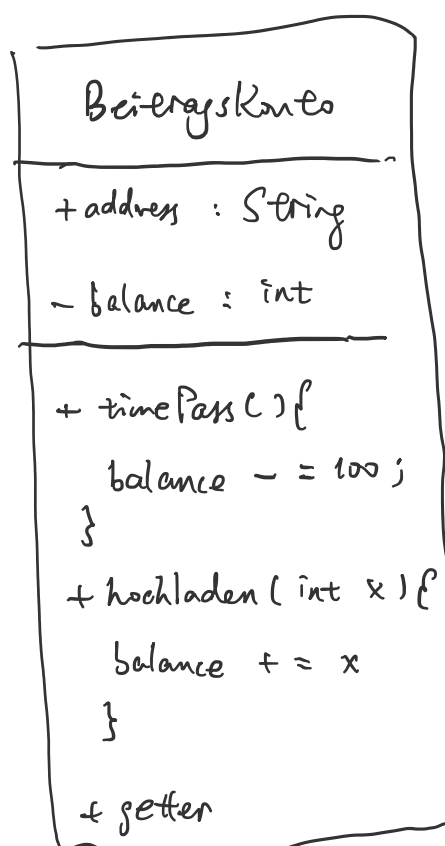 BeitragsKonto
+ address : String
- balance : int
+ timePass(){
balance -= 100;
}
+ hochladen(int x){
balance += x
}
+ getter